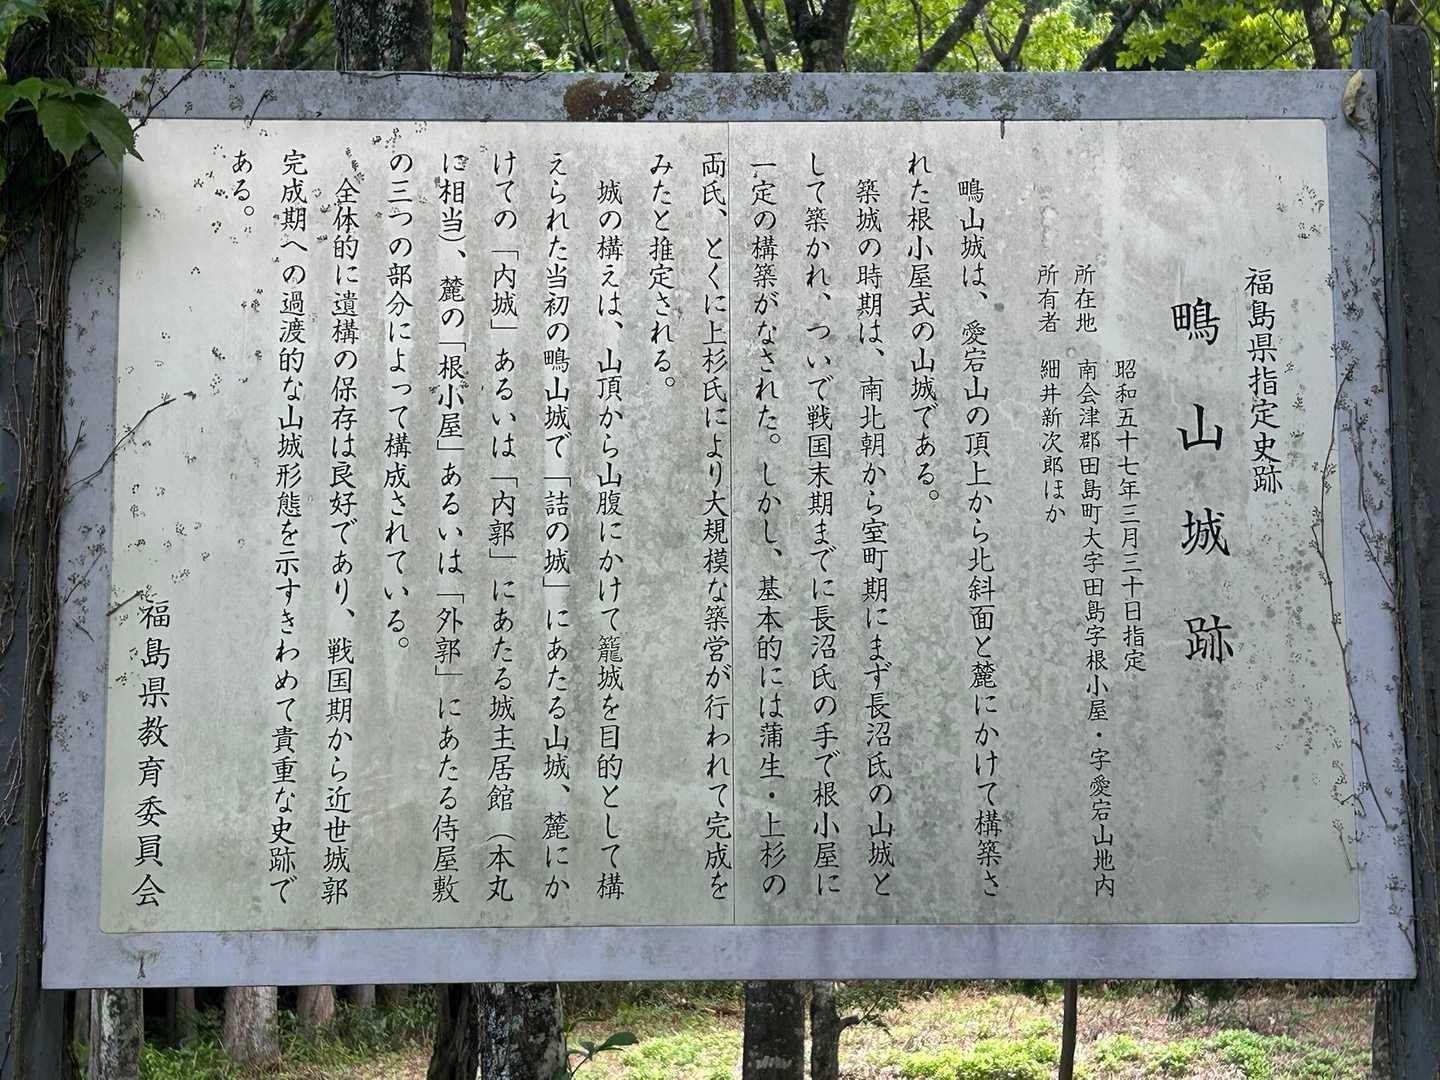 福島県指定史跡
鴫山城跡
昭和五十七年三月三十日指定
所在地　南会津郡田島町大字田島字根小屋・字愛宕山地内
所有者　細井新次郎ほか
鴫山城は、愛宕山の頂上から北斜面と麓にかけて構築さ
れた根小屋式の山城である。
築城の時期は、南北朝から室町期にまず長沼氏の山城と
して築かれ、ついで戦国末期までに長沼氏の手で根小屋に
一定の構築がなされた。しかし、基本的には蒲生・上杉の
両氏、とくに上杉氏により大規模な築営が行われて完成を
みたと推定される。
城の構えは、山頂から山腹にかけて籠城を目的として構
えられた当初の鴫山城で「詰の城」にあたる山城、麓にか
けての「内城」あるいは「内郭」にあたる城主居館（本丸
に相当）、麓の「根小屋」あるいは「外郭」にあたる侍屋敷
の三つの部分によって構成されている。
全体的に遺構の保存は良好であり、戦国期から近世城郭
完成期への過渡的な山城形態を示すきわめて貴重な史跡で
ある。
福島県教育委員会